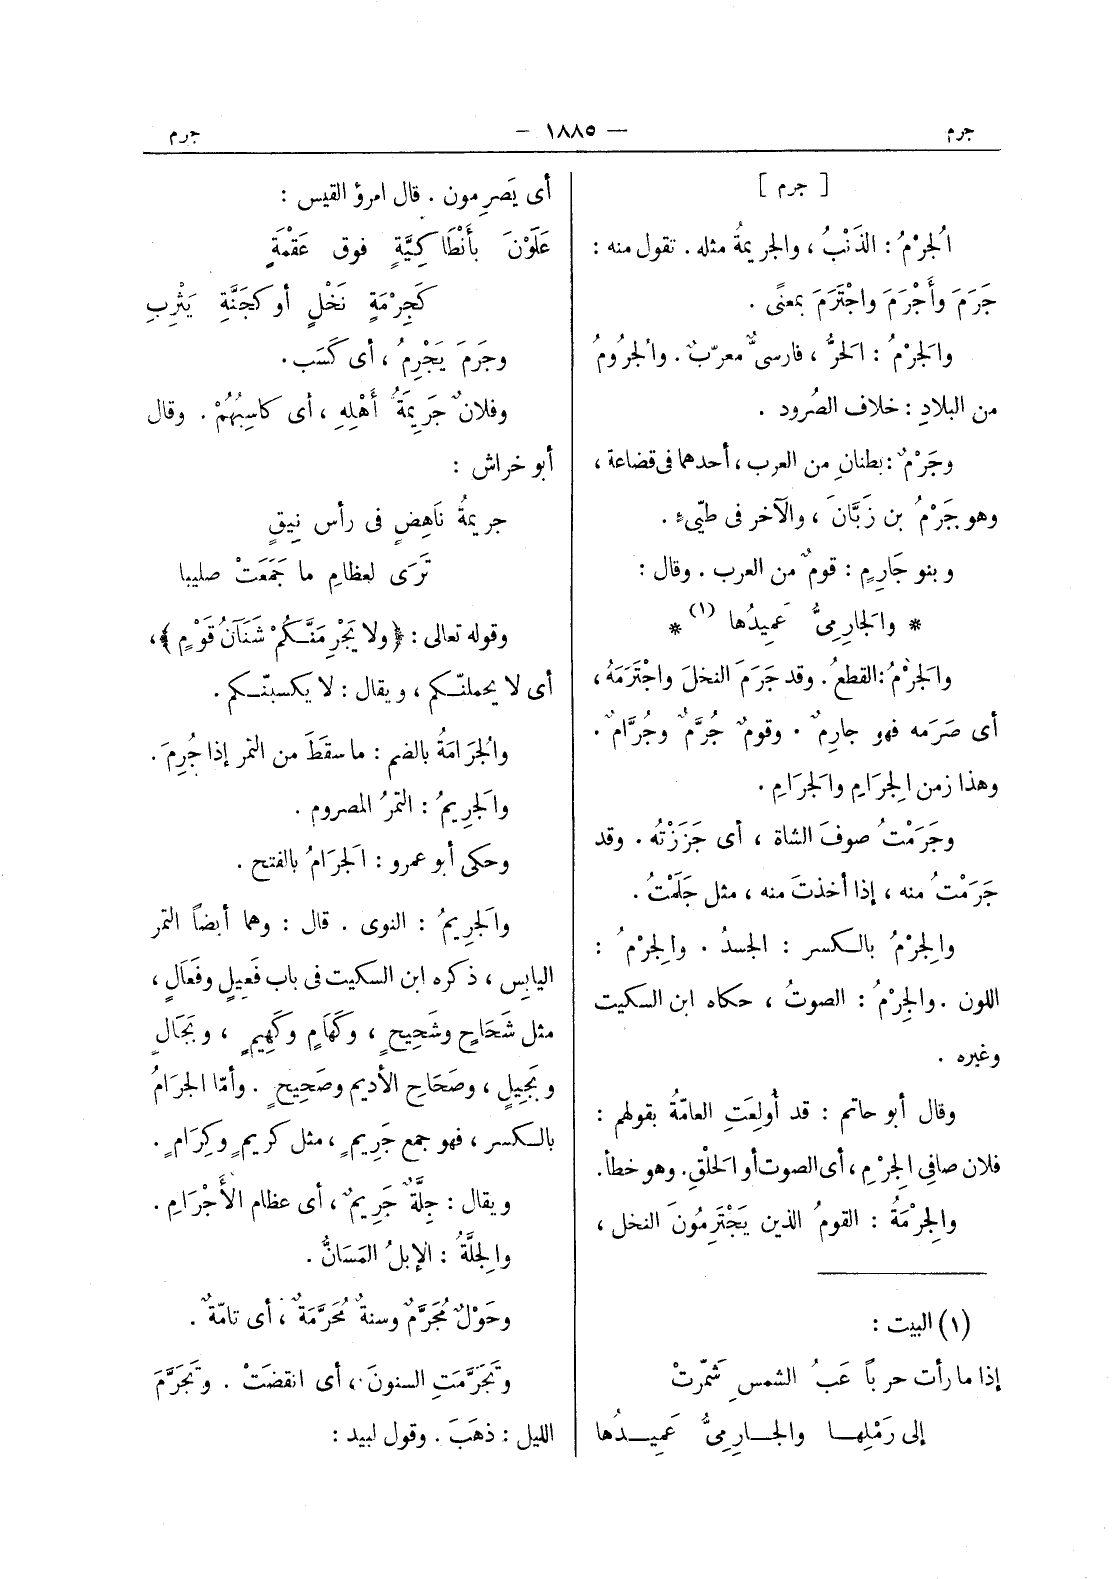 جرم — ١٨٨٥ — جرم
[ جرم ]
الجُرْمُ : الذَنْبُ ، والجريمةُ مثله . تقول منه :
جَرَمَ وأَجْرَمَ واجْتَرَمَ بمعنًى .
والجَرْمُ : الحَرُّ ، فارسىٌّ معرّبٌ . والجرُومُ
من البلادِ : خلاف الصُرود .
وجَرْمٌ : بطنانِ من العرب ، أحدهما فى قضاعة ،
وهو جَرْمُ بن زَبَّانَ ، والآخر فى طيّىءٍ .
وبنو جَارِمٍ : قومٌ من العرب . وقال :
* والجارِمِىُّ عَمِيدُها (١) *
والجَرْمُ : القطعُ . وقد جَرَمَ النخلَ واجْتَرَمَهُ ،
أى صَرَمه فهو جارمٌ . وقومٌ جُرَّمٌ وجُرَّامٌ .
وهذا زمن الجِرَامِ والجَرَامِ .
وجَرَمْتُ صوفَ الشاة ، أى جَزَزْتُه . وقد
جَرَمْتُ منه ، إذا أخذتَ منه ، مثل جَلَمْتُ .
والجِرْمُ بالكسر : الجسدُ . والجِرْمُ :
اللون . والجِرْمُ : الصوتُ ، حكاه ابن السكيت
وغيره .
وقال أبو حاتم : قد أُولِعَتِ العامّةُ بقولهم :
فلان صافى الجِرْمِ ، أى الصوت أو الحَلْقِ . وهو خطأ .
والجِرْمَةُ : القومُ الذين يَجْتَرِمُونَ النخل ،
(١) البيت :
إذا ما رأت حرباً عَبُ الشمسِ شَمَّرتْ
إلى رَمْلِها والجارِمِىُّ عَمِيدُها
أى يَصرِمون . قال امرؤ القيس :
عَلَوْنَ بأَنْطَاكِيَّةٍ فوق عَقْمَةٍ
كَجِرْمَةِ نَخْلٍ أو كَجَنَّةِ يَثْرِبِ
وجَرَمَ يَجْرِمُ ، أى كَسَب .
وفلانٌ جَرِيمَةُ أَهْلِهِ ، أى كاسِبُهُمْ . وقال
أبو خراش :
جريمةُ نَاهِضٍ فى رأس نِيقٍ
تَرَى لعظامِ ما جَمَعَتْ صليبا
وقوله تعالى : ﴿ولا يَجْرِمَنَّكُمْ شَنَآنُ قَوْمٍ﴾ ،
أى لا يحملنّكم ، ويقال : لا يكسبنّكم .
والجُرَامَةُ بالضم : ما سقَطَ من التمر إذا جُرِمَ .
والجَرِيمُ : التمرُ المصروم .
وحكى أبو عمرو : الجَرَامُ بالفتح .
والجَرِيمُ : النوى . قال : وهما أيضاً التمر
اليابِس ، ذكره ابن السكيت فى باب فَعِيلٍ وفَعَالٍ ،
مثل شَحَاحٍ وشَحِيحٍ ، وكَهَامٍ وكَهِيمٍ ، وبَجَالٍ
وبَجِيلٍ ، وصَحَاحِ الأديم وصَحِيحٍ . وأمّا الجِرَامُ
بالكسر ، فهو جمع جَرِيمٍ ، مثل كريمٍ وكِرَامٍ .
ويقال : جِلَّةٌ جَرِيمٌ ، أى عظام الأَجْرَامِ .
والجِلَّةُ : الإبلُ المَسَانُّ .
وحَوْلٌ مُجَرَّمٌ وسنةٌ مُجَرَّمَةٌ ، أى تامّةٌ .
وتَجَرَّمَتِ السنونَ ، أى انقضَتْ . وتَجَرَّمَ
الليل : ذهَبَ . وقول لبيد :